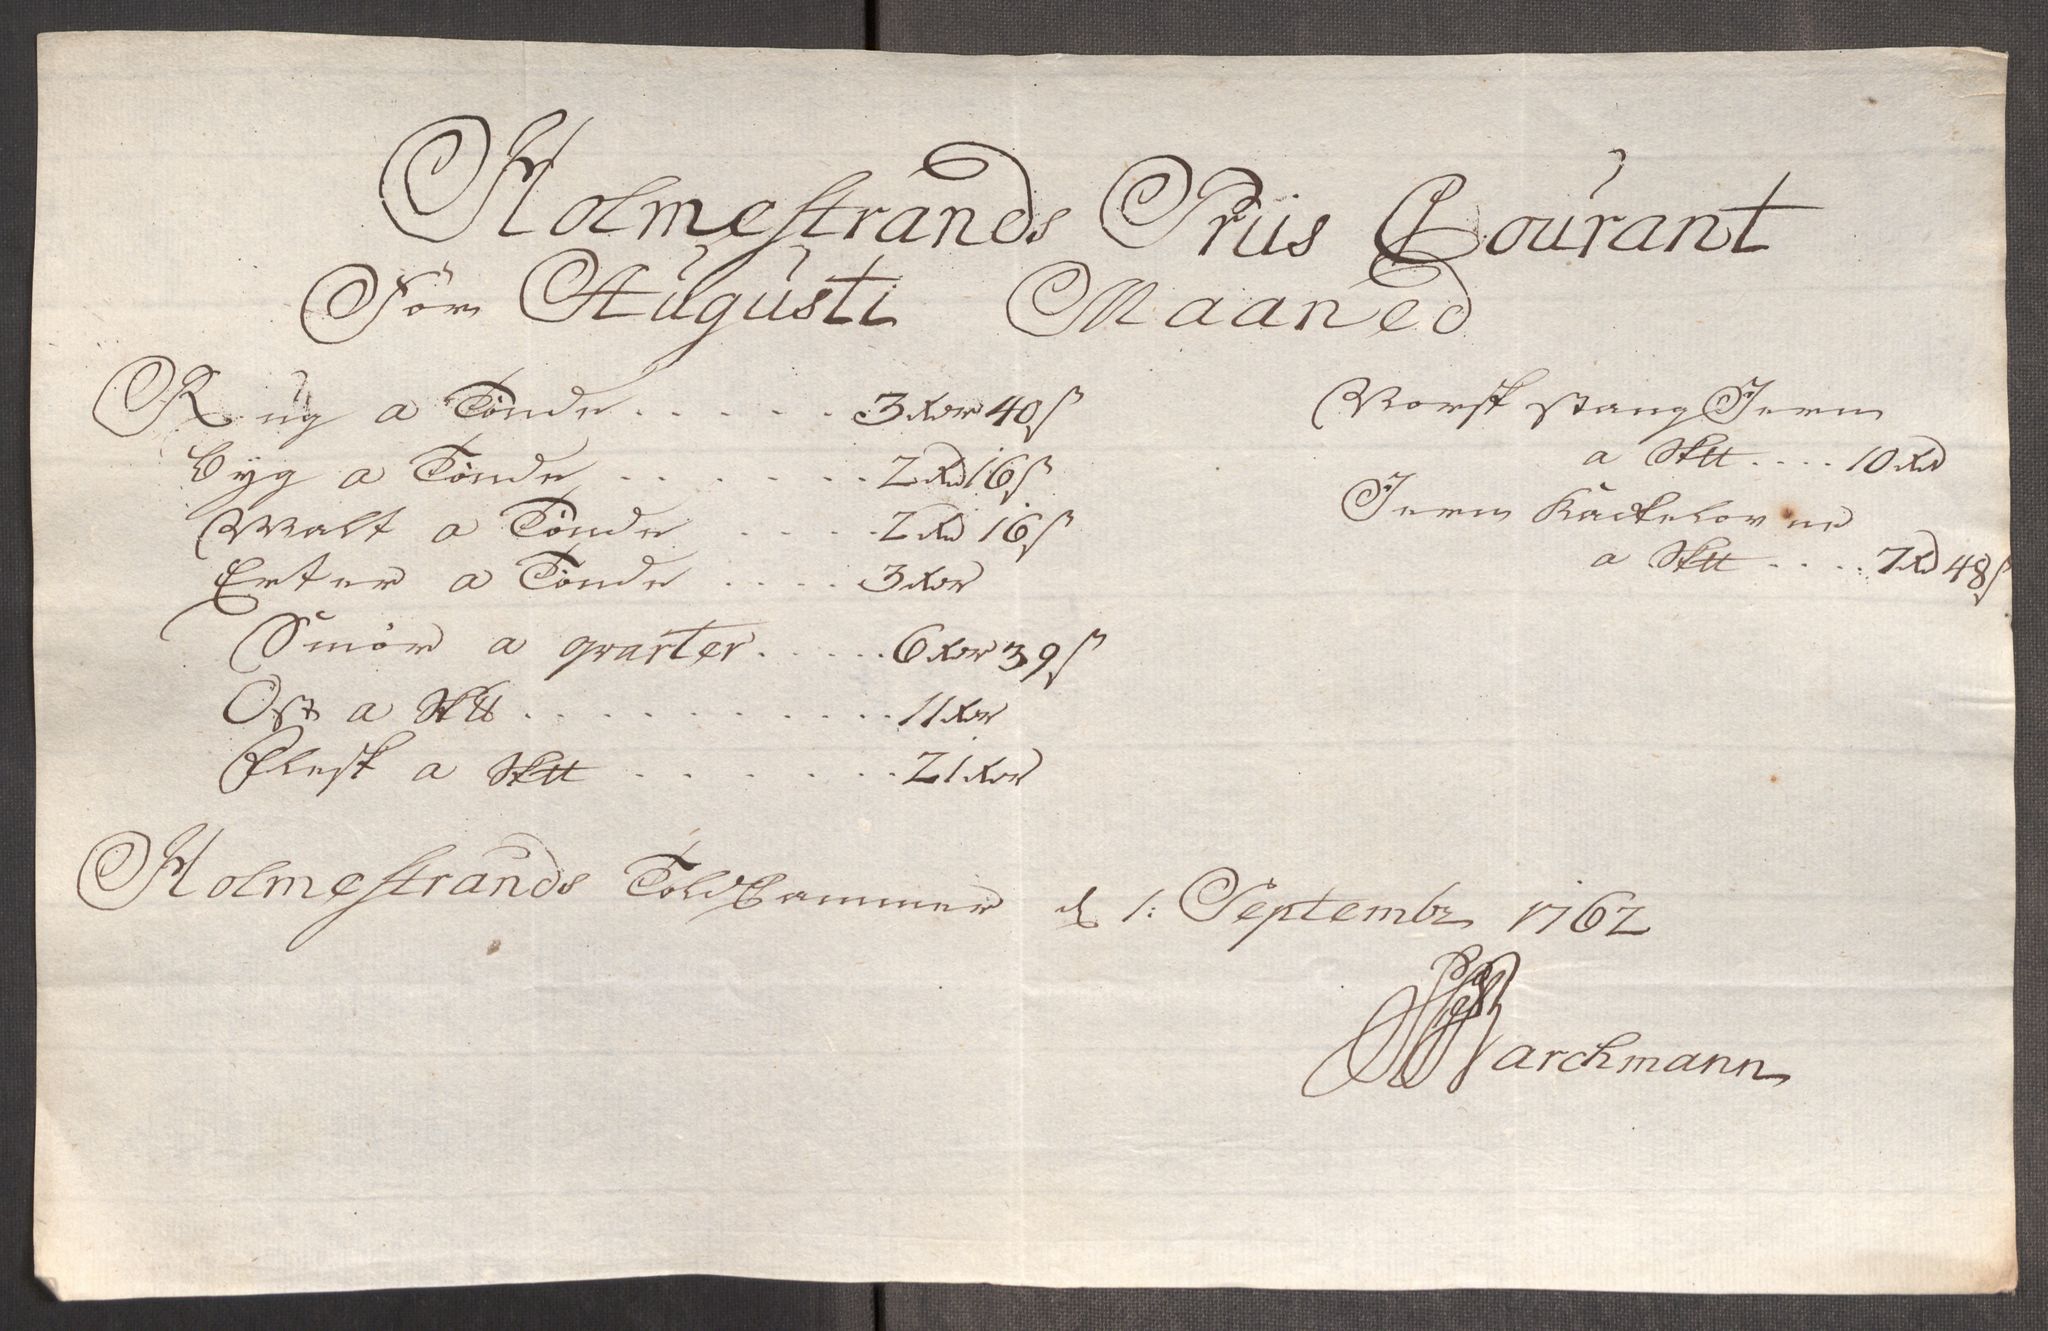 Holmestrands Priis Courant
For Augusti Maaned
Rug a Tønde ..... 3 Rdr 40 ß
Byg a Tønde ...... 2 Rd 16 ß
Malt a Tønde ..... 2 Rd 16 ß
Erter a Tønde .... 3 Rdr
Smør a qvarter ..... 6 Rdr 39 ß
Ost a Sk℔ .......... 11 Rdr
Flesk a Sk℔ ....... 21 Rdr
Norsk stang Jern
a Sk℔ .... 10 Rd
Jern Kackelovne
a Sk℔ .... 7 Rd 48 ß
Holmestrands Told Cammer d 1: Septembr 1762
Barchmann